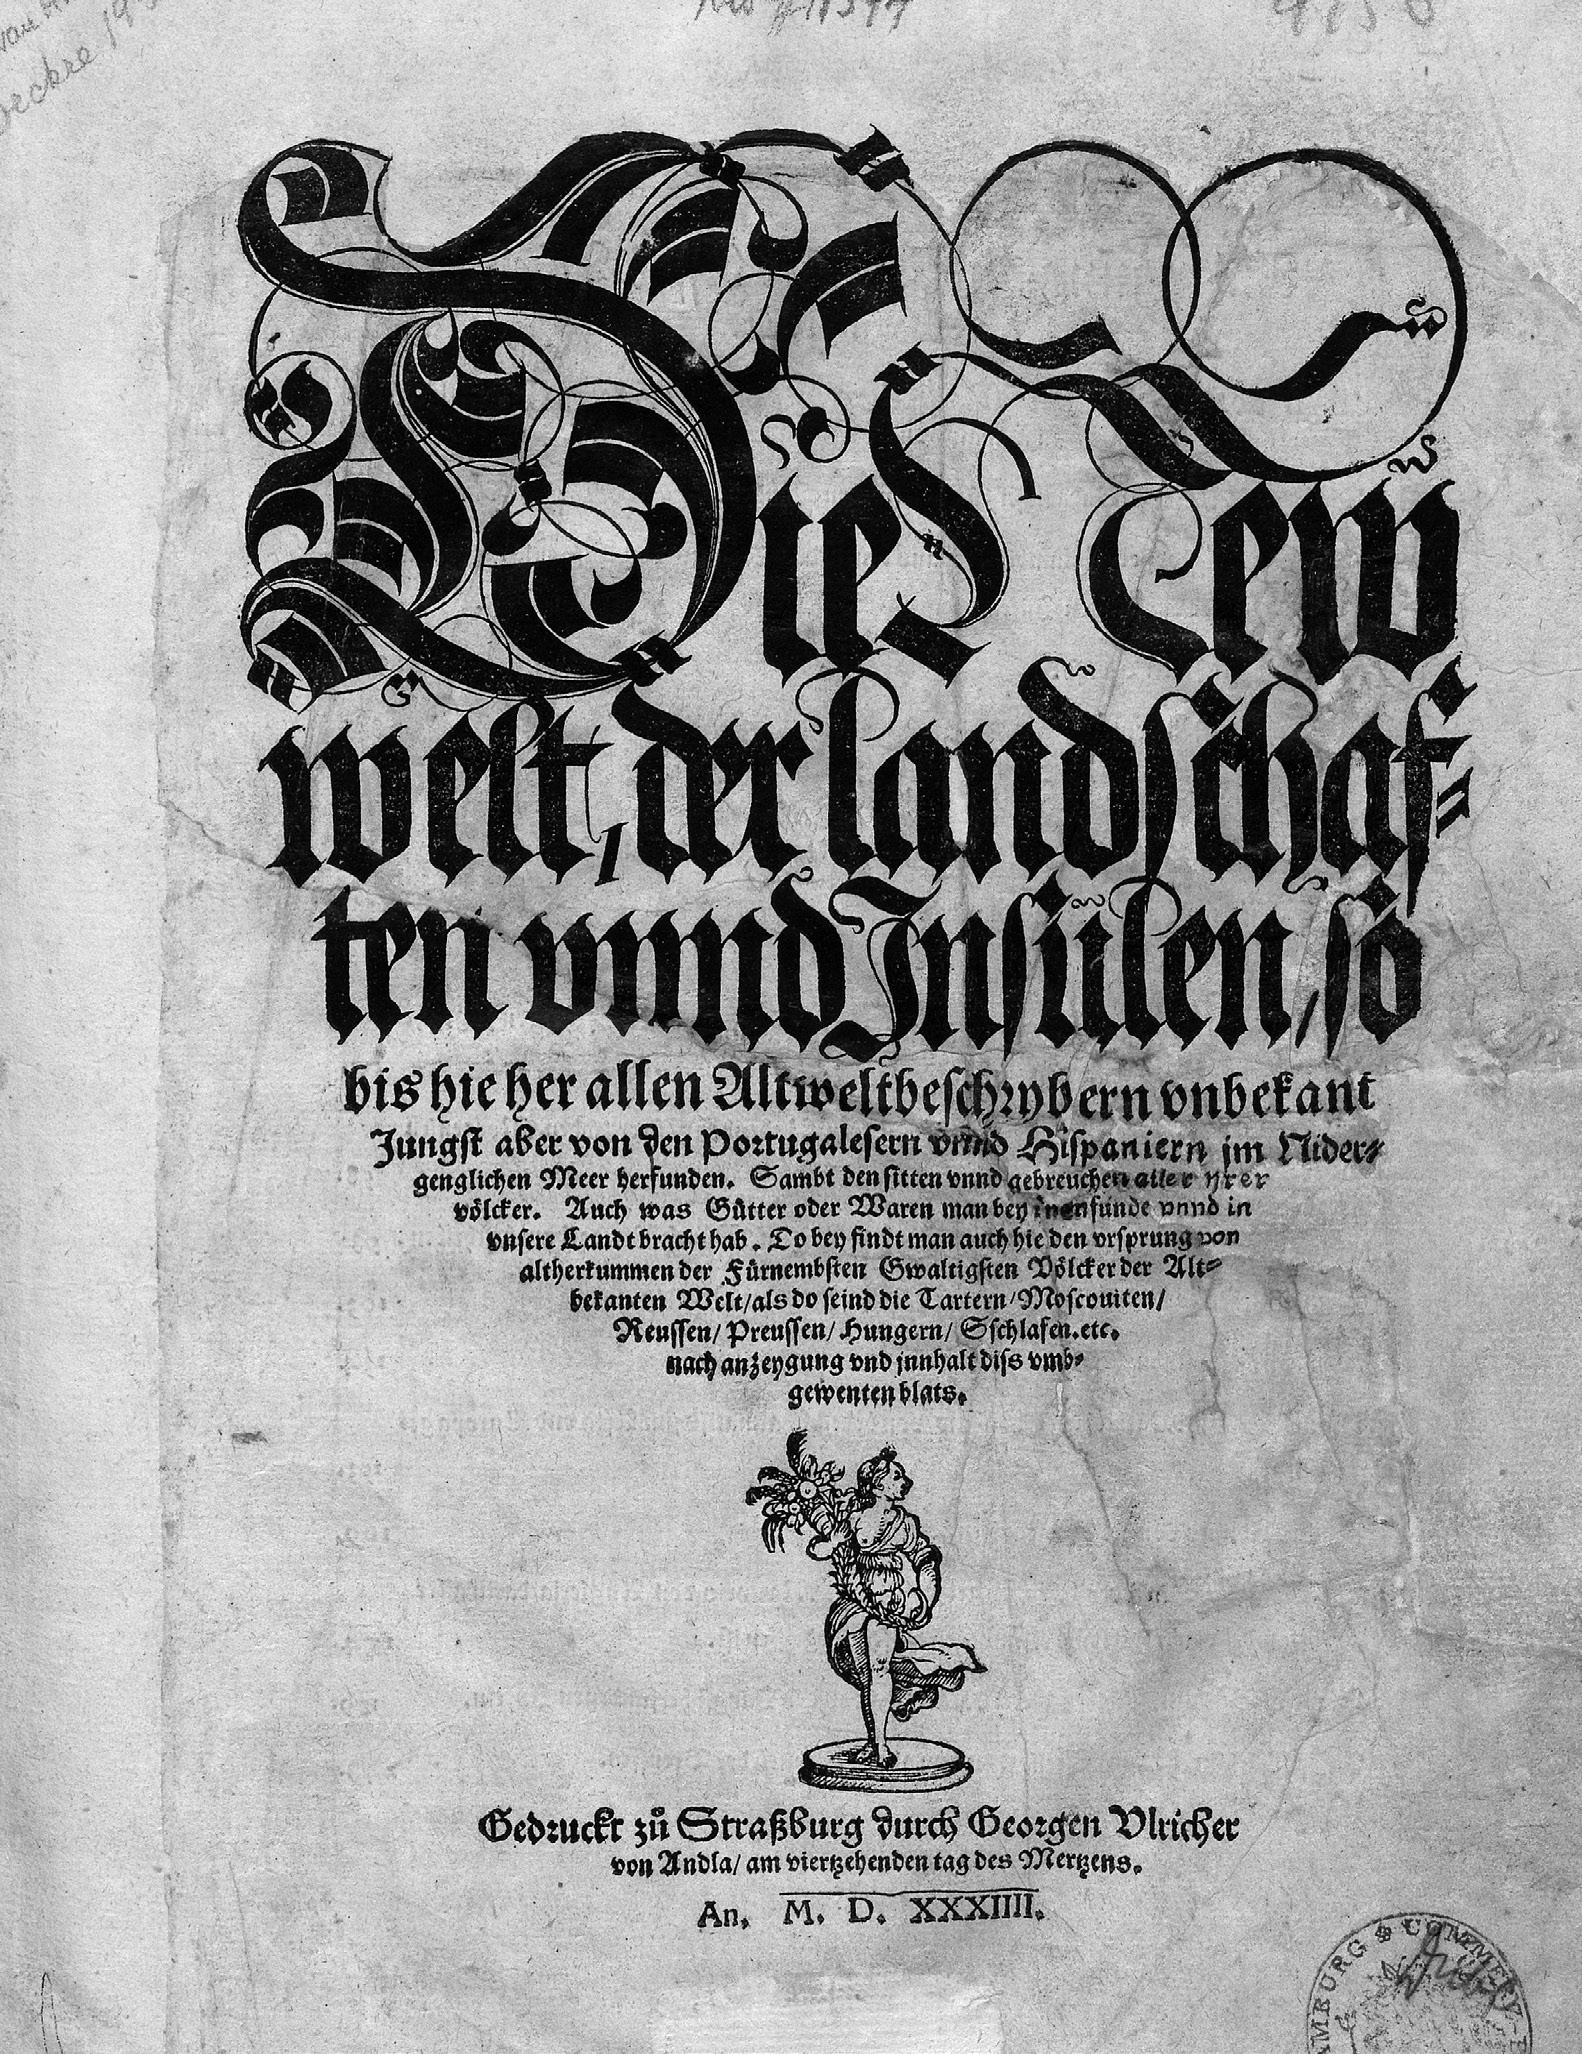 Die New
welt, der landschaf⸗
ten vnnd Insulen, so
bis hie her allen Altweltbeschrybern vnbekant
Jungst aber von den Portugalesern vnnd Hispaniern jm Nider⸗
genglichen Meer herfunden. Sambt den sitten vnnd gebreuchen aller yrer
völcker. Auch was Gütter oder Waren man bey inen funde vnnd in
vnsere Landt bracht hab. Do bey findt man auch hie den vrsprung von
altherkummen der Fürnembsten Gwaltigsten Völcker der Alt⸗
bekanten Welt/als do seind die Tartern/Moscouiten/
Reussen/Preussen/Hungern/Sschlafen.etc.
nach anzeygung vnd jnnhalt diss vmb⸗
gewenten blats.
Gedruckt zů Straßburg durch Georgen Vlricher
von Andla/am viertzehenden tag des Mertzens.
An. M. D. XXXIIII.